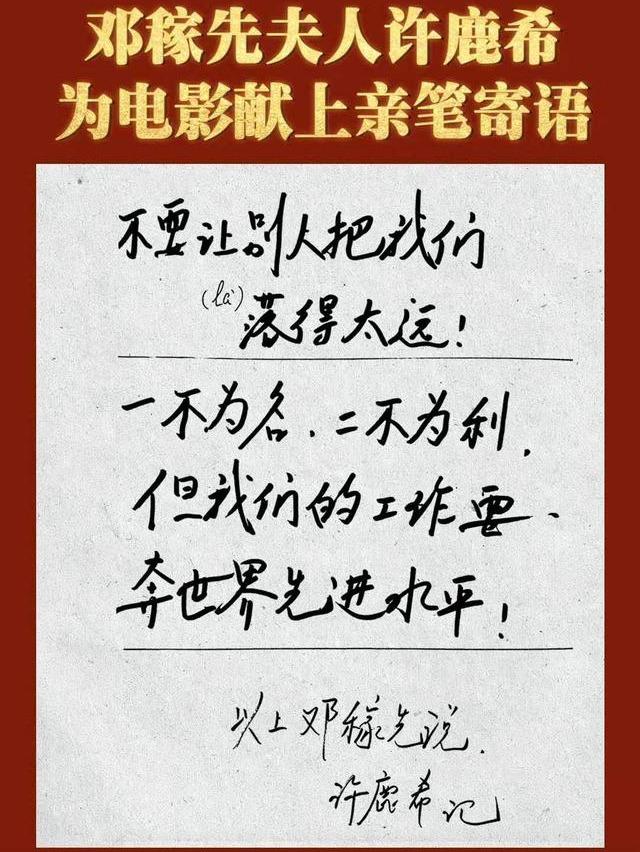 邓稼先夫人许鹿希
为电影献上亲笔寄语
不要让别人把我们
(là)
落得太远！
一不为名、二不为利，
但我们的工作要、
奔世界先进水平！
以上邓稼先说．
许鹿希记